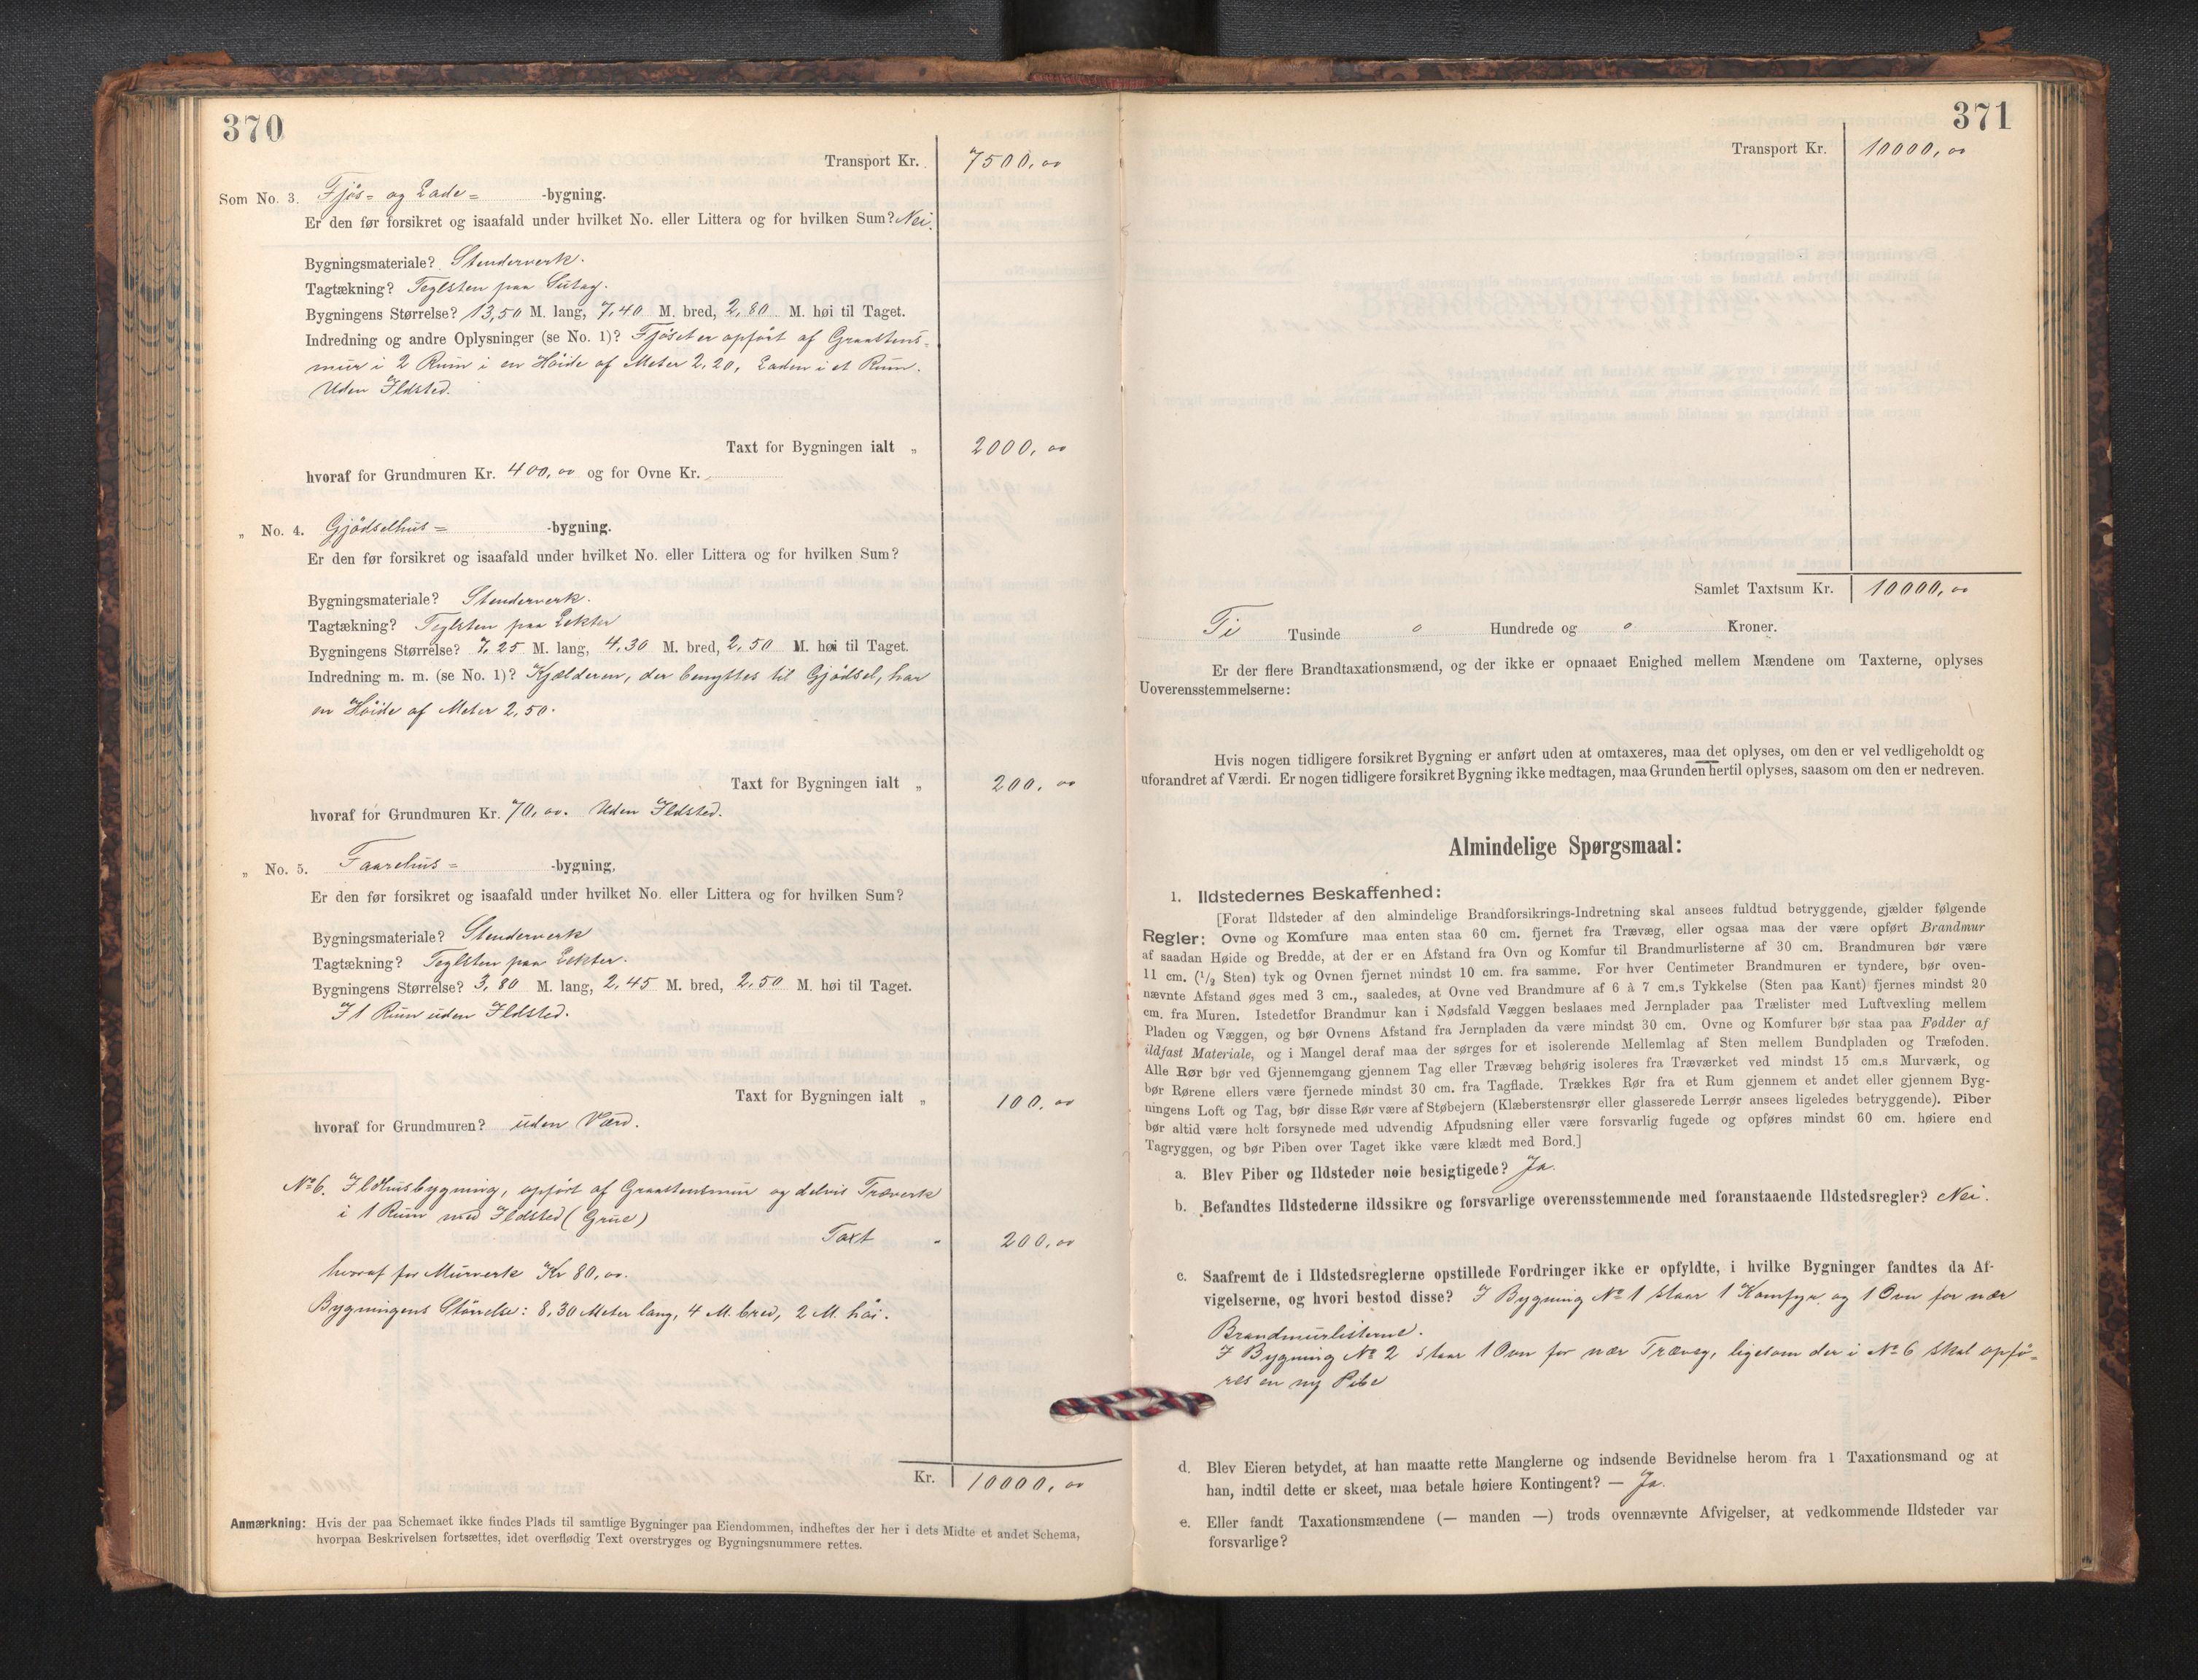 370
Transport Kr. 7500,00
Som No. 3. Fjøs- og Lade= -bygning.
Er den før forsikret og isaafald under hvilket No. eller Littera og for hvilken Sum? Nei.
Bygningsmateriale? Stenderverk.
Tagtækning? Teglsten paa Sutag.
Bygningens Størrelse? 13,50 M. lang, 7,40 M. bred, 2,80 M. høi til Taget.
Indredning og andre Oplysninger (se No. 1)? Fjøset er opført af Graastens-
mur i 2 Rum i en Høide af Meter 2,20, Laden i et Rum.
Uden Ildsted.
Taxt for Bygningen ialt „ 2000,00
hvoraf for Grundmuren Kr. 400,00 og for Ovne Kr.
„ No. 4. Gjødselhus= -bygning.
Er den før forsikret og isaafald under hvilket No. eller Littera og for hvilken Sum?
Bygningsmateriale? Stenderverk.
Tagtækning? Teglsten paa Lekter
Bygningens Størrelse? 7,25 M. lang, 4,30 M. bred, 2,50 M. høi til Taget.
Indredning m. m. (se No. 1)? Kjælderen, der benyttes til Gjødsel, har
en Høide af Meter 2,50.
Taxt for Bygningen ialt „ 200,00
hvoraf for Grundmuren Kr. 70,00. Uden Ildsted.
„ No. 5. Faarehus= -bygning.
Er den før forsikret og isaafald under hvilket No. eller Littera og for hvilken Sum?
Bygningsmateriale? Stenderverk
Tagtækning? Teglsten paa Lekter.
Bygningens Størrelse? 3,80 M. lang, 2,45 M. bred, 2,50 M. høi til Taget.
I 1 Rum uden Ildsted.
Taxt for Bygningen ialt „ 100,00
hvoraf for Grundmuren? uden Værd.
No 6. Ildhusbygning, opført af Graastensmur og delvis Træverk
i 1 Rum med Ildsted (Grue)
Taxt „ 200,00
hvoraf for Murverk Kr 80,00.
Bygningens Størrelse: 8,30 Meter lang, 4 M. bred, 2 M. høi.
Kr. 10000,00
Anmærkning: Hvis der paa Schemaet ikke findes Plads til samtlige Bygninger paa Eiendommen, indheftes der her i dets Midte et andet Schema,
hvorpaa Beskrivelsen fortsættes, idet overflødig Text overstryges og Bygningsnummere rettes.
371
Transport Kr. 10000,00
Samlet Taxtsum Kr. 10000,00
Ti Tusinde o Hundrede og o Kroner.
Er der flere Brandtaxationsmænd, og der ikke er opnaaet Enighed mellem Mændene om Taxterne, oplyses
Uoverensstemmelserne:
Hvis nogen tidligere forsikret Bygning er anført uden at omtaxeres, maa det oplyses, om den er vel vedligeholdt og
uforandret af Værdi. Er nogen tidligere forsikret Bygning ikke medtagen, maa Grunden hertil oplyses, saasom om den er nedreven.
Almindelige Spørgsmaal:
1. Ildstedernes Beskaffenhed:
[Forat Ildsteder af den almindelige Brandforsikrings-Indretning skal ansees fuldtud betryggende, gjælder følgende
Regler: Ovne og Komfure maa enten staa 60 cm. fjernet fra Trævæg, eller ogsaa maa der være opført Brandmur
af saadan Høide og Bredde, at der er en Afstand fra Ovn og Komfur til Brandmurlisterne af 30 cm. Brandmuren bør være
11 cm. (1/2 Sten) tyk og Ovnen fjernet mindst 10 cm. fra samme. For hver Centimeter Brandmuren er tyndere, bør oven-
nævnte Afstand øges med 3 cm., saaledes, at Ovne ved Brandmure af 6 à 7 cm.s Tykkelse (Sten paa Kant) fjernes mindst 20
cm. fra Muren. Istedetfor Brandmur kan i Nødsfald Væggen beslaaes med Jernplader paa Trælister med Luftvexling mellem
Pladen og Væggen, og bør Ovnens Afstand fra Jernpladen da være mindst 30 cm. Ovne og Komfurer bør staa paa Fødder af
ildfast Materiale, og i Mangel deraf maa der sørges for et isolerende Mellemlag af Sten mellem Bundpladen og Træfoden.
Alle Rør bør ved Gjennemgang gjennem Tag eller Trævæg behørig isoleres fra Træværket ved mindst 15 cm.s Murværk, og
bør Rørene ellers være fjernede mindst 30 cm. fra Tagflade. Trækkes Rør fra et Rum gjennem et andet eller gjennem Byg-
ningens Loft og Tag, bør disse Rør være af Støbejern (Klæberstensrør eller glasserede Lerrør ansees ligeledes betryggende). Piber
bør altid være helt forsynede med udvendig Afpudsning eller være forsvarlig fugede og opføres mindst 60 cm. høiere end
Tagryggen, og bør Piben over Taget ikke være klædt med Bord.]
a. Blev Piber og Ildsteder nøie besigtigede? Ja.
b. Befandtes Ildstederne ildssikre og forsvarlige overensstemmende med foranstaaende Ildstedsregler? Nei.
c. Saafremt de i Ildstedsreglerne opstillede Fordringer ikke er opfyldte, i hvilke Bygninger fandtes da Af-
vigelserne, og hvori bestod disse? I Bygning No 1 staar 1 Komfyr og 1 Ovn for nær
Brandmurlisterne.
I Bygning No 2 staar 1 Ovn for nær Trævæg, ligesom der i No 6 skal opfø-
res en ny Pibe
d. Blev Eieren betydet, at han maatte rette Manglerne og indsende Bevidnelse herom fra 1 Taxationsmand og at
han, indtil dette er skeet, maa betale høiere Kontingent? — Ja.
e. Eller fandt Taxationsmændene (— manden —) trods ovennævnte Afvigelser, at vedkommende Ildsteder var
forsvarlige?